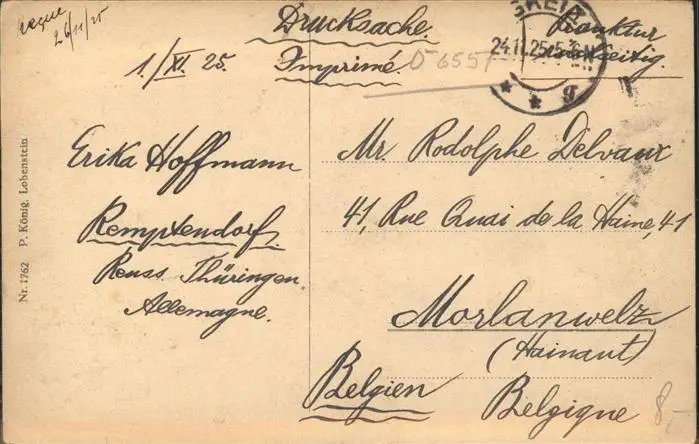 reçue
26/11/25
Drucksache.
Imprimé.
1./XI. 25.
D 6557
GREIZ
24.11.25.5-6N
* * g
Frankatur
rückseitig.
Erika Hoffmann
Remptendorf.
Reuss. Thüringen
Allemagne.
Mr. Rodolphe Delvaux
41, Rue Quai de la Haine, 41
Morlanwelz
(Hainaut)
Belgien Belgique
8,-
Nr. 1762 P. König, Lobenstein